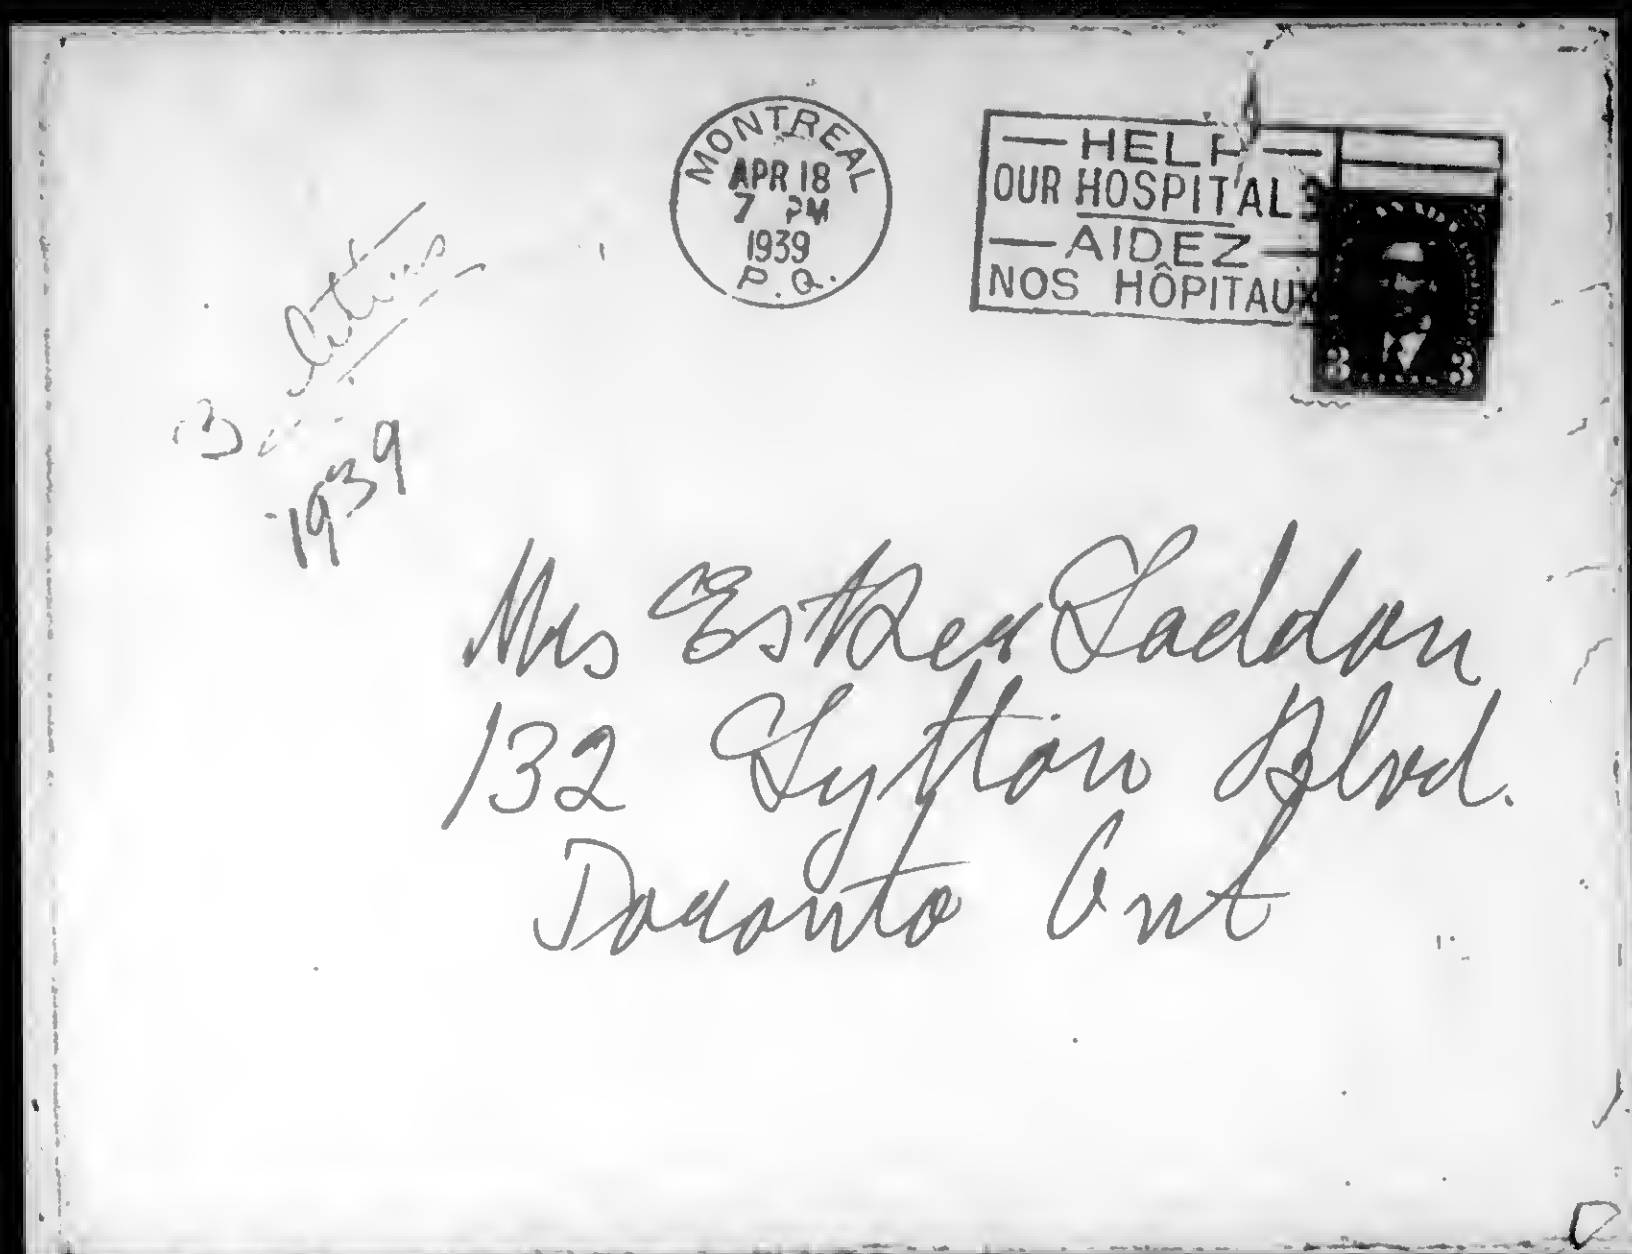 MONTREAL
APR 18
7 PM
1939
P.Q.
— HELP —
OUR HOSPITALS
— AIDEZ —
NOS HÔPITAUX
3 3
1939
Mrs Esther Laddon
132 Lytton Blvd.
Toronto Ont